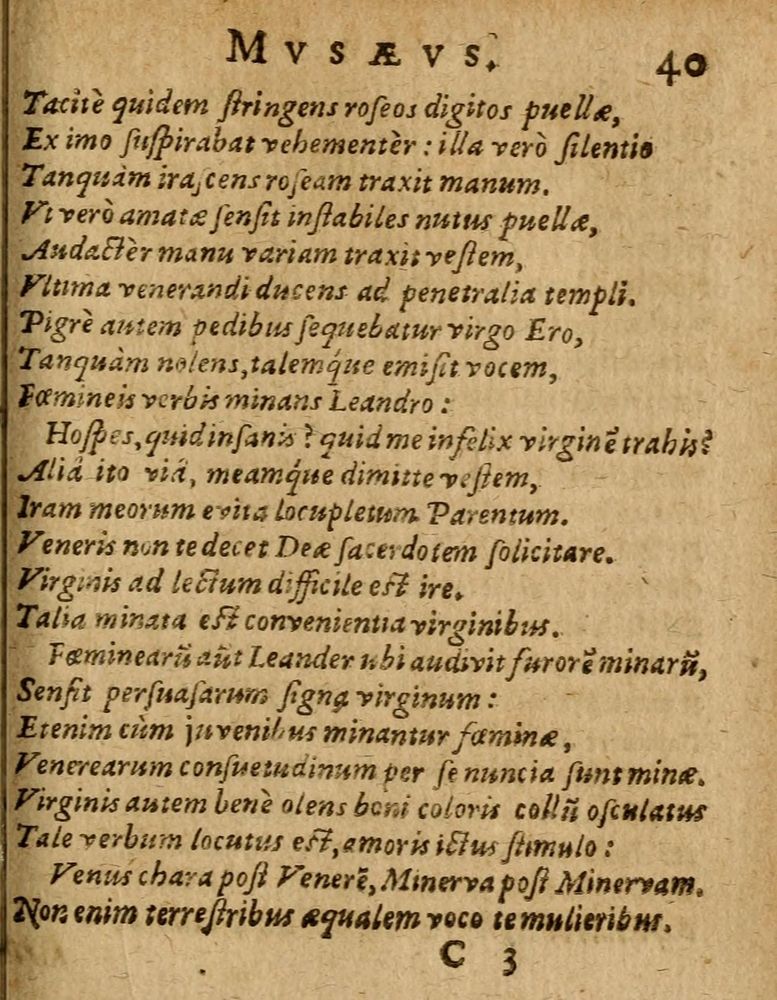 MVSÆVS. 40
Tacitè quidem ſtringens roſeos digitos puellæ,
Ex imo ſuſpirabat vehementèr : illa verò ſilentio
Tanquàm iraſcens roſeam traxit manum.
Vt verò amatæ ſenſit inſtabiles nutus puellæ,
Audactèr manu variam traxit veſtem,
Vltima venerandi ducens ad penetralia templi.
Pigrè autem pedibus ſequebatur virgo Ero,
Tanquàm nolens, talemq́ue emiſit vocem,
Fœmineis verbis minans Leandro :
Hoſpes, quid inſanis ? quid me infelix virginē trahis?
Aliâ ito viâ, meamq́ue dimitte veſtem,
Iram meorum evita locupletum Parentum.
Veneris non te decet Deæ ſacerdotem ſolicitare.
Virginis ad lectum difficile eſt ire.
Talia minata eſt convenientia virginibus.
Fœminearū aūt Leander ubi audivit furorē minarū,
Senſit perſuaſarum ſigna virginum :
Etenim cùm juvenibus minantur fœminæ,
Venerearum conſuetudinum per ſe nuncia ſunt minæ.
Virginis autem benè olens boni coloris collū oſculatus
Tale verbum locutus eſt, amoris ictus ſtimulo :
Venus chara poſt Venerē, Minerva poſt Minervam.
Non enim terreſtribus æqualem voco te mulieribus.
C 3